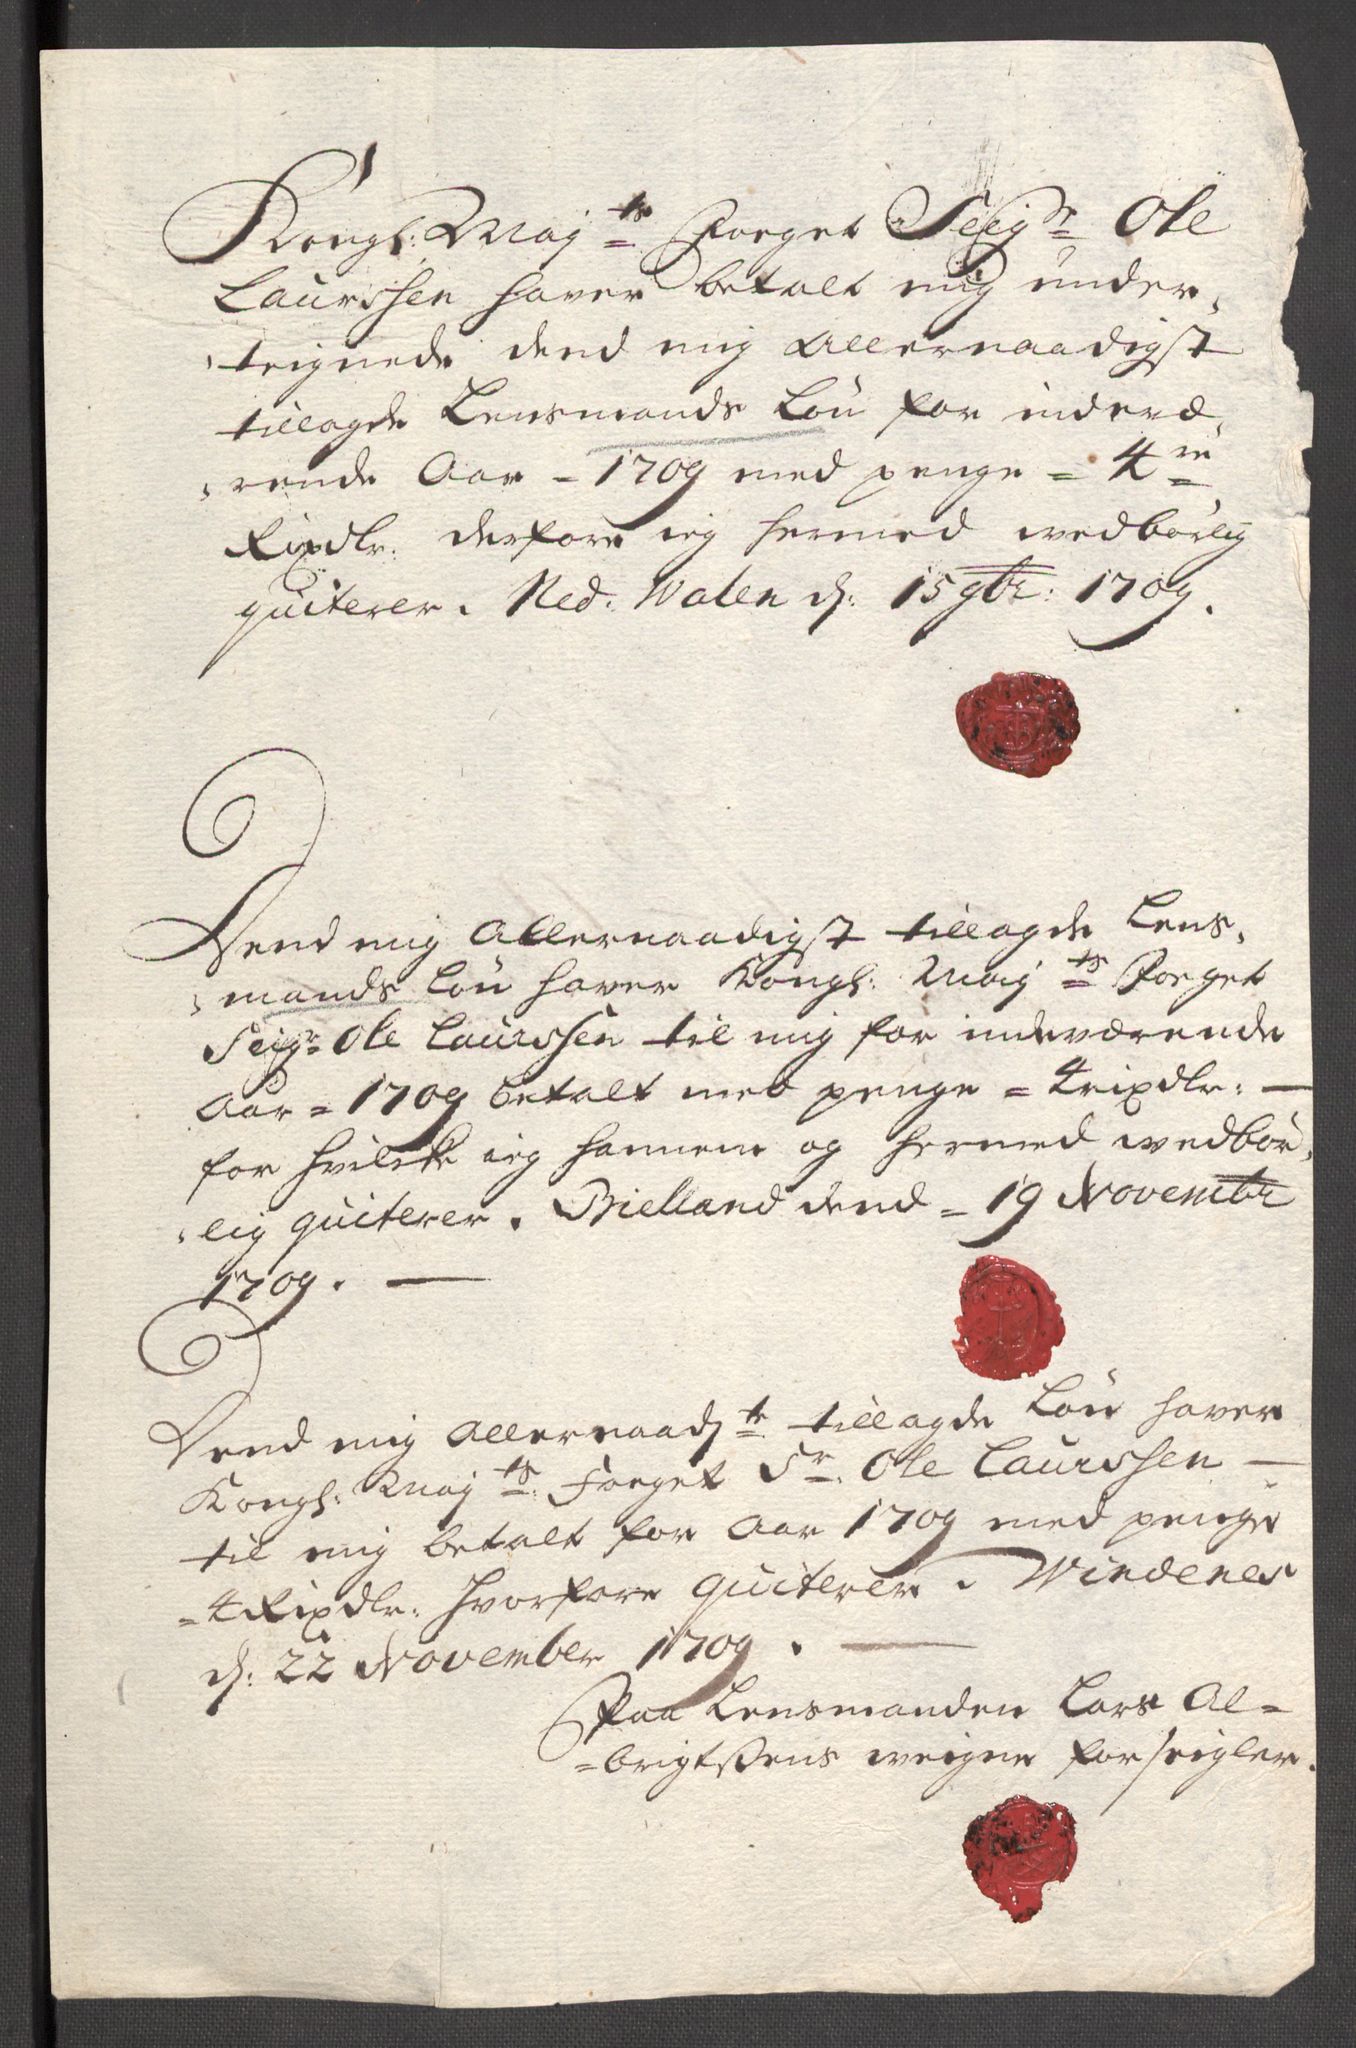 Kongl: Maj ts Foeget Seigr Ole
Laurssen haver betalt mig under,
,teignede dend mig Allernaadigst
tillagde Lensmands Løn for indevæ,
,rende Aar - 1709 med penge = 4re
Rixdlr: derfore ieg hermed wedbørlig
quiterer. Ned: Walen d: 15 9br: 1709.
Dend mig Allernaadigst tillagde Lens,
,mands Løn haver Kongl: Maj ts Foeget
Seigr Ole Laurssen til mig for indeværende
Aar = 1709 betalt med penge = 4 rixdlr: —
for hvilcke ieg hannem og hermed wedbør,
,lig quiterer. Bielland dend = 19 Novembr
1709. —
Dend mig Allernaad: te tillagde Løn haver
Kongl: Maj ts Foeget Sr. Ole Laurssen —
til mig betalt for Aar 1709 med penge
= 4 Rixdlr: hvorfore quiterer. Windenes
d: 22 November 1709. —
Paa Lensmanden Lars Al=
=brigtsens weigne forseigler.